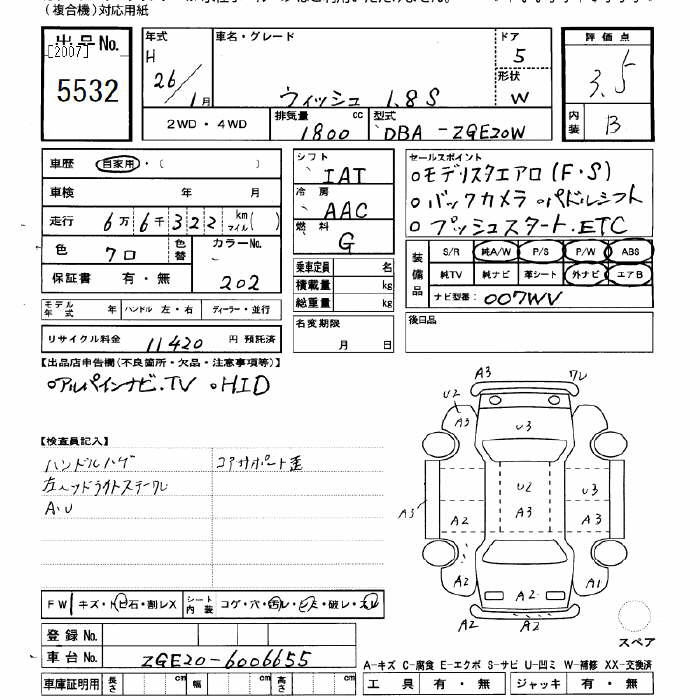 (複合機)対応用紙
出品No.
[2007]
5532
年式 車名・グレード ドア 評価点
H 5 3.5
26/1月 ウィッシュ 1.8S 形状 W
2WD・4WD 排気量 1800 cc 型式 DBA-ZGE20W 内装 B
車歴 自家用・( )
車検 年 月
走行 6万6千322 km マイル( )
色 クロ 色替 カラーNo. 202
保証書 有・無
モデル年式 年 ハンドル 左・右 ディーラー・並行
リサイクル料金 11420 円 預託済
シフト IAT
冷房 AAC
燃料 G
乗車定員 名
積載量 kg
総重量 kg
名変期限
月 日
セールスポイント
○モデリスタエアロ(F・S)
○バックカメラ ○パドルシフト
○プッシュスタート.ETC
装備品 S/R 純A/W P/S P/W ABS
純TV 純ナビ 革シート 外ナビ エアB
ナビ型番: 007WV
後日品
【出品店申告欄(不良箇所・欠品・注意事項等)】
○アルパインナビ.TV ○HID
【検査員記入】
ハンドルハゲ コアサポート歪
左ヘッドライトステーワレ
A.U
A3 ワレ
U2 A3 U3
U2 U3
A3 A2 A3 A3
A2 A2 A1
A2 A2
スペア
FW キズ・トビ石・割レX シート内装 コゲ・穴・汚レ・シミ・破レ・スレ
登録No.
車台No. ZGE20-6006655
A-キズ C-腐食 E-エクボ S-サビ U-凹ミ W-補修 XX-交換済
車庫証明用 長さ cm 幅 cm 高さ cm 工具 有・無 ジャッキ 有・無